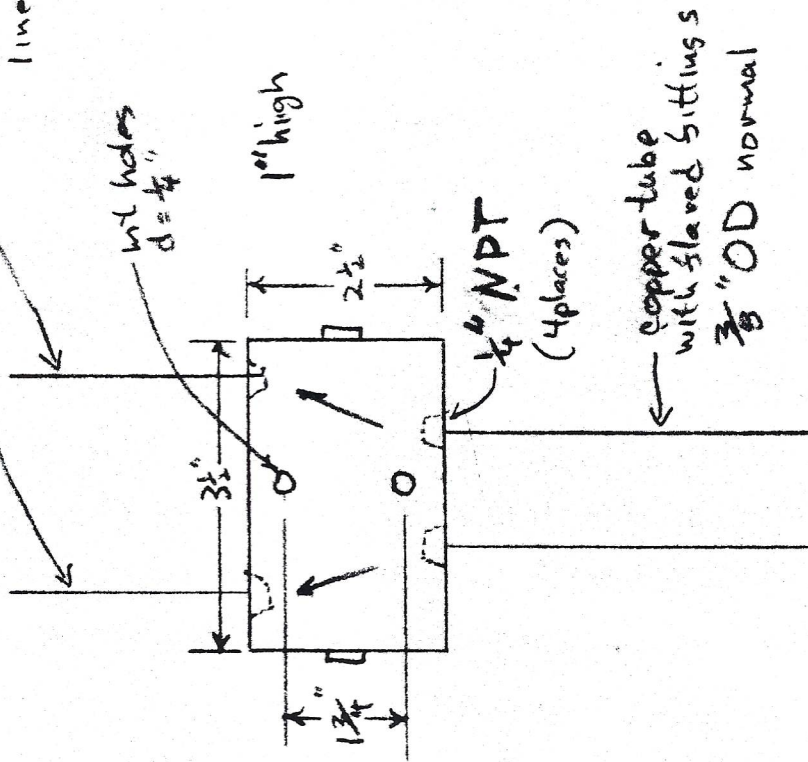 line
mt holes
d = 1/4"
1" high
3 1/2"
2 1/2"
1 3/4"
1/4" NPT
(4 places)
copper tube
with flared fittings
3/8" OD normal